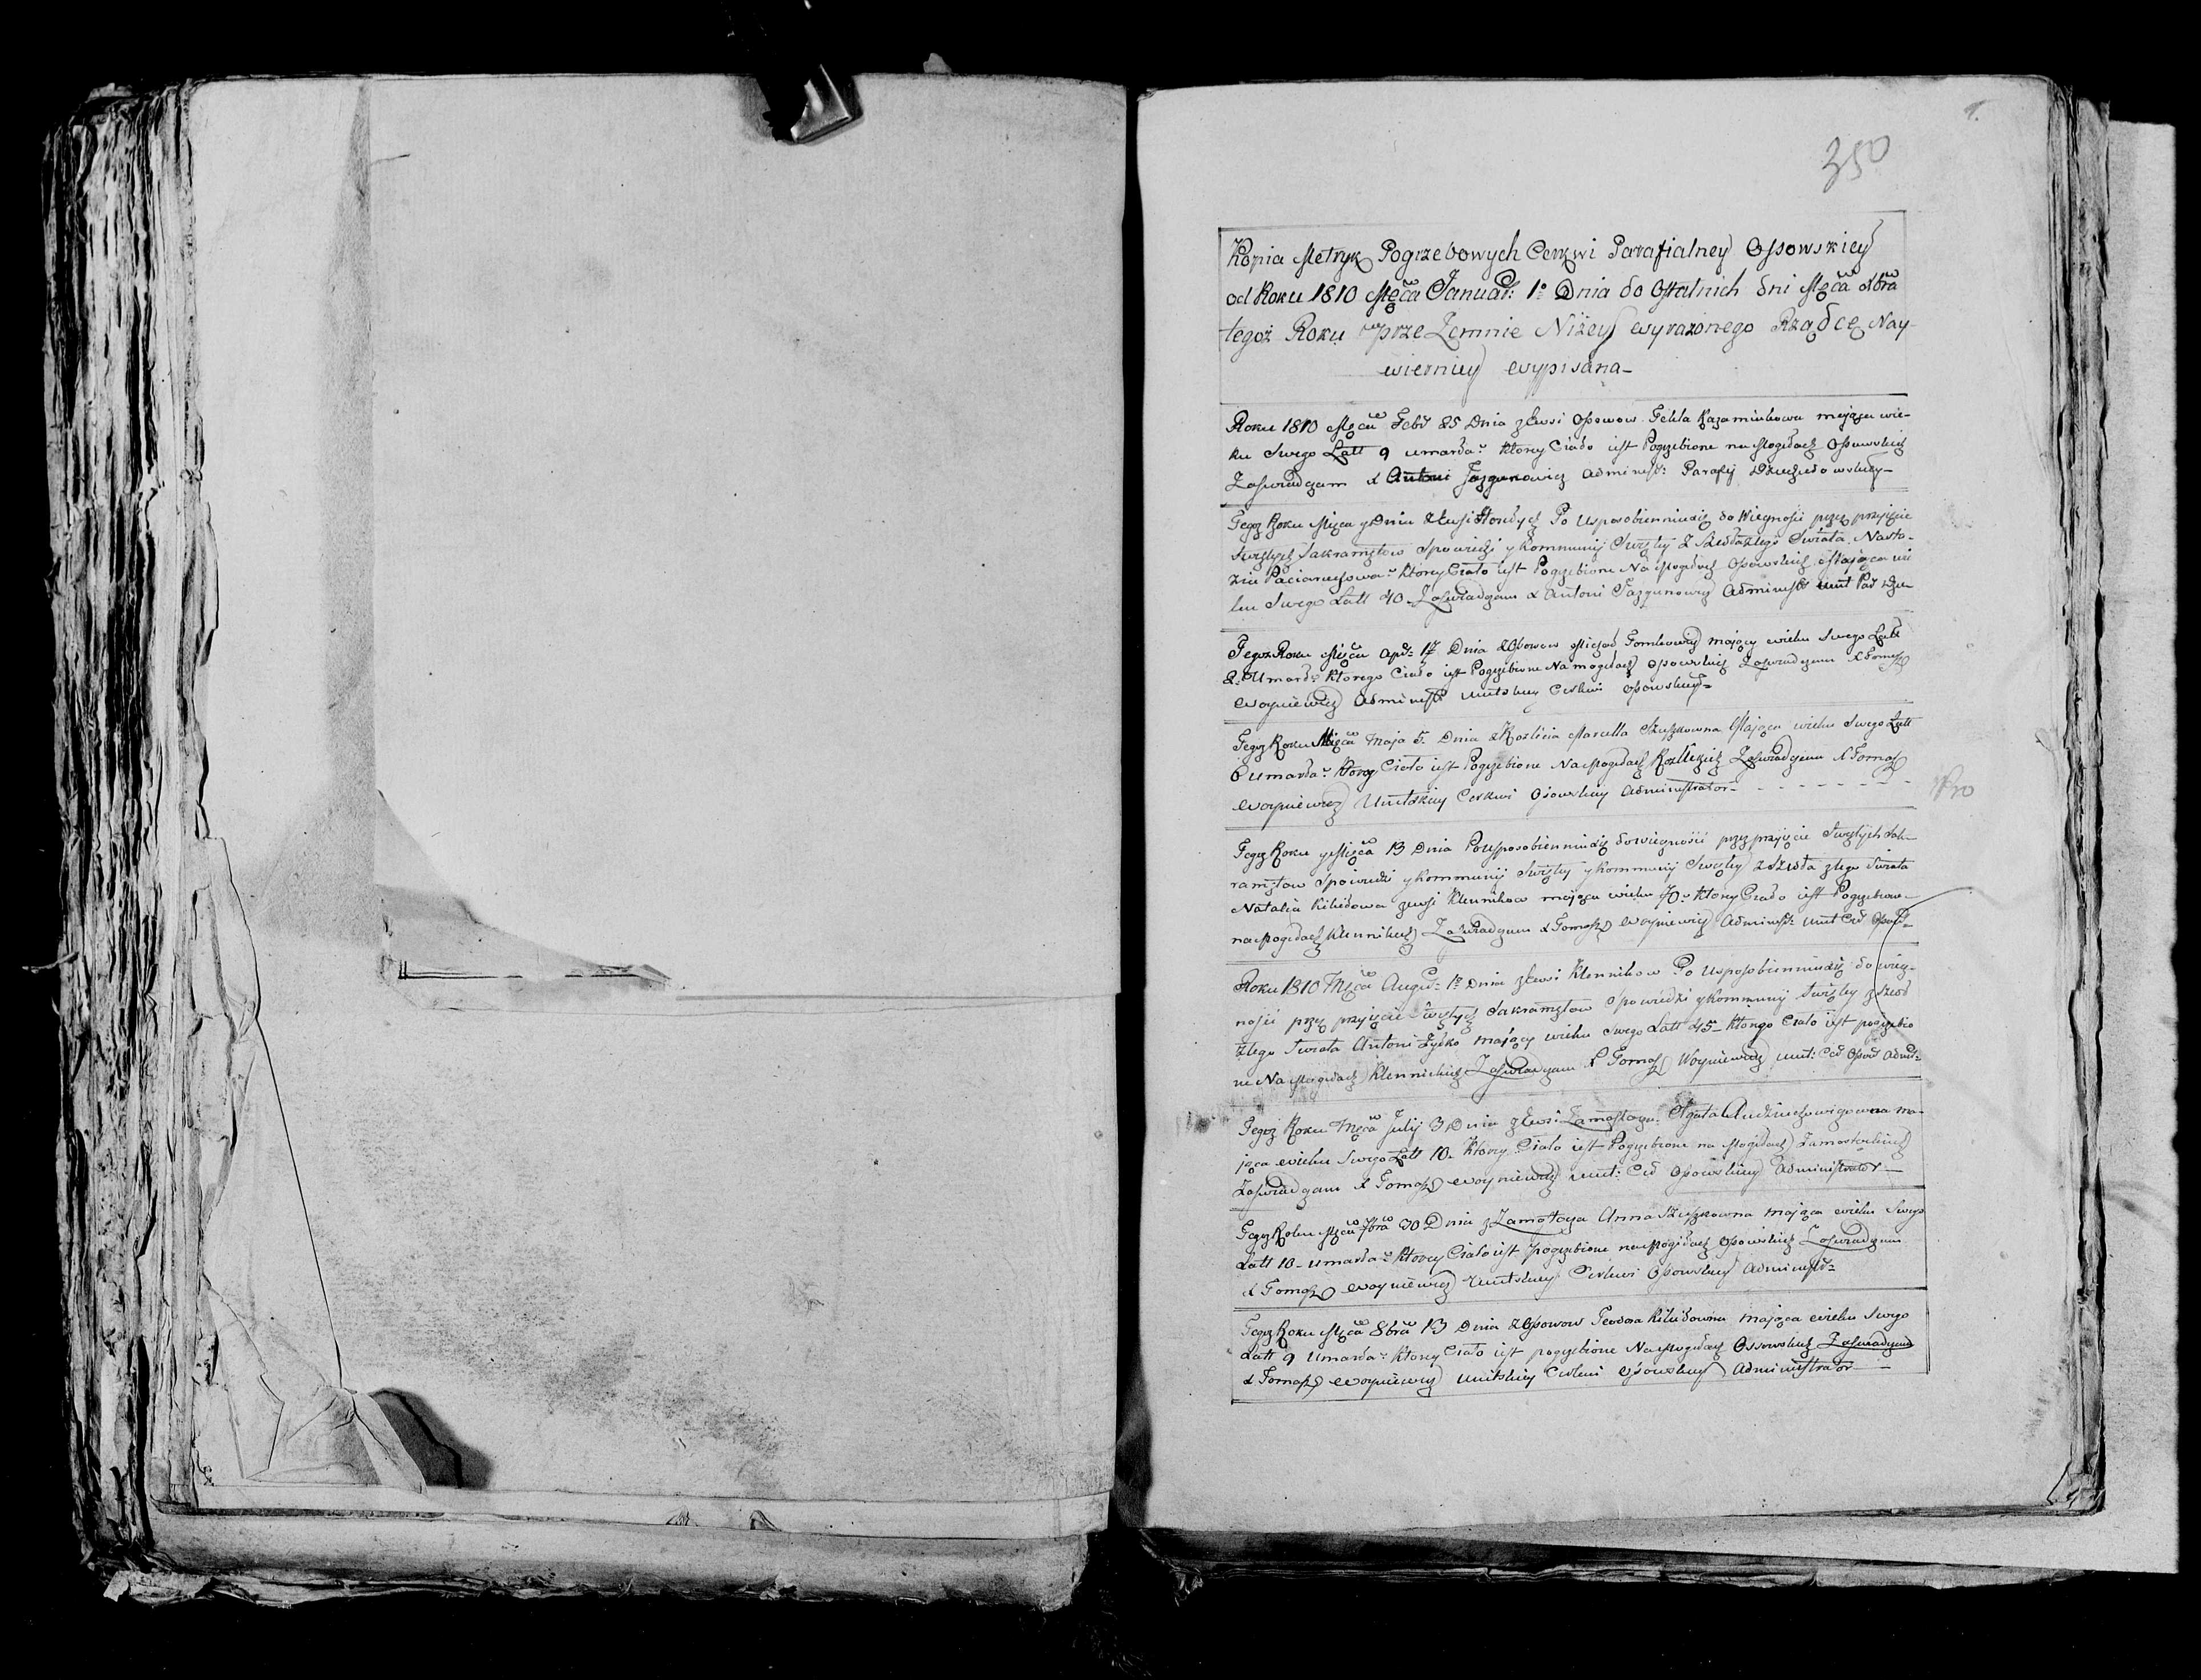 1.
350
Kopia Metryk Pogrzebowych Cerkwi Parafialney Ossowskiey
od Roku 1810 Mca Januar: 1º Dnia do Ostatnich dni Mca Xbra
tegoż Roku przezemnie Niżey wyrażonego Rządcę Nay-
wierniey wypisana
Roku 1810 Mca Febr 25 Dnia z Wsi Ossowow Tekla Kazaminkowa mająca wie-
ku Swego Latt 9 umarła Ktorey Ciało iest Pogrzebione na Mogiłach Ossowskich
Zaświadczam X Antoni Jazgunowicz Administ: Parafij
Tegoż Roku Miesca y Dnia z Wsi Po Usposobieniu się do Wiecznosci przez przyięcie
Swiętych Sakramętow Spowiedzi y Kommunij Swiętey Z Szedła z tego Swiata Nasta-
zia Ktorey Ciało iest Pogrzebione Na Mogiłach Ossowskich Mająca wie
ku Swego Latt 40 Zaświadczam X Antoni Jazgunowicz Administ Unit Par
Tegoż Roku Miesca Apr: 17 Dnia z Ossowow Michał Tomkowicz mający wieku Swego Latt
2 Umarł Ktorego Ciało iest Pogrzebione Na mogiłach Ossowskich Zaświadczam X Tomasz
Woyniewicz Administ Unitskiey Cerkwi Ossowskiey
Tegoż Roku Miesca Maja 5 Dnia z Kozlicia Marcella Szuszkowna Mająca wieku Swego Latt
6 umarła Ktorey Ciało iest Pogrzebione Na Mogiłach Kozlickich Zaświadczam X Tomasz
Woyniewicz Unitskiey Cerkwi Ossowskiey Administrator
Tegoż Roku y Miesca 13 Dnia Po Usposobieniu się do wiecznosci przez przyięcie Swiętych Sak-
ramętow Spowiedzi y Kommunij Swiętey y Kommunij Swiętey z Szedła z tego Swiata
Natalia Kibidowa z wsi Klennikow mająca wieku 70 Ktorey Ciało iest Pogrzebione
na Mogiłach Klennickich Zaświadczam X Tomasz Woyniewicz Administ: Unit Cer Ossows
Roku 1810 Mca August 1º Dnia z Wsi Klennikow Po Usposobieniu się do wiecz-
nosci przez przyięcie Swiętych Sakramętow Spowiedzi y Kommunij Swiętey z szedł
z tego Swiata Antoni Zyśko mający wieku Swego Latt 45 Ktorego Ciało iest pogrzebio
ne Na Mogiłach Klennickich Zaświadczam X Tomasz Woyniewicz Unit: Cer Ossow Admi:
Tegoż Roku Mca Julij 3 Dnia z Wsi Zamostocza Agata ma-
jąca wieku Swego Latt 10 Ktorey Ciało iest Pogrzebione na Mogiłach Zamostockich
Zaświadczam X Tomasz Woyniewicz Unit: Cer Ossowskiey Administrator
Tegoż Roku Mca 7bra 30 Dnia z Zamostocza Anna Szuszkowna mająca wieku Swego
Latt 10 umarła Ktorey Ciało iest pogrzebione na Mogiłach Ossowskich Zaświadczam
X Tomasz Woyniewicz Unitskiey Cerkwi Ossowskiey Administr
Tegoż Roku Mca 8bra 13 Dnia z Ossowow Teodora Kibidowna mająca wieku Swego
Latt 9 Umarła Ktorey Ciało iest pogrzebione Na Mogiłach Ossowskich Zaświadczam
X Tomasz Woyniewicz Unitskiey Cerkwi Ossowskiey Administrator